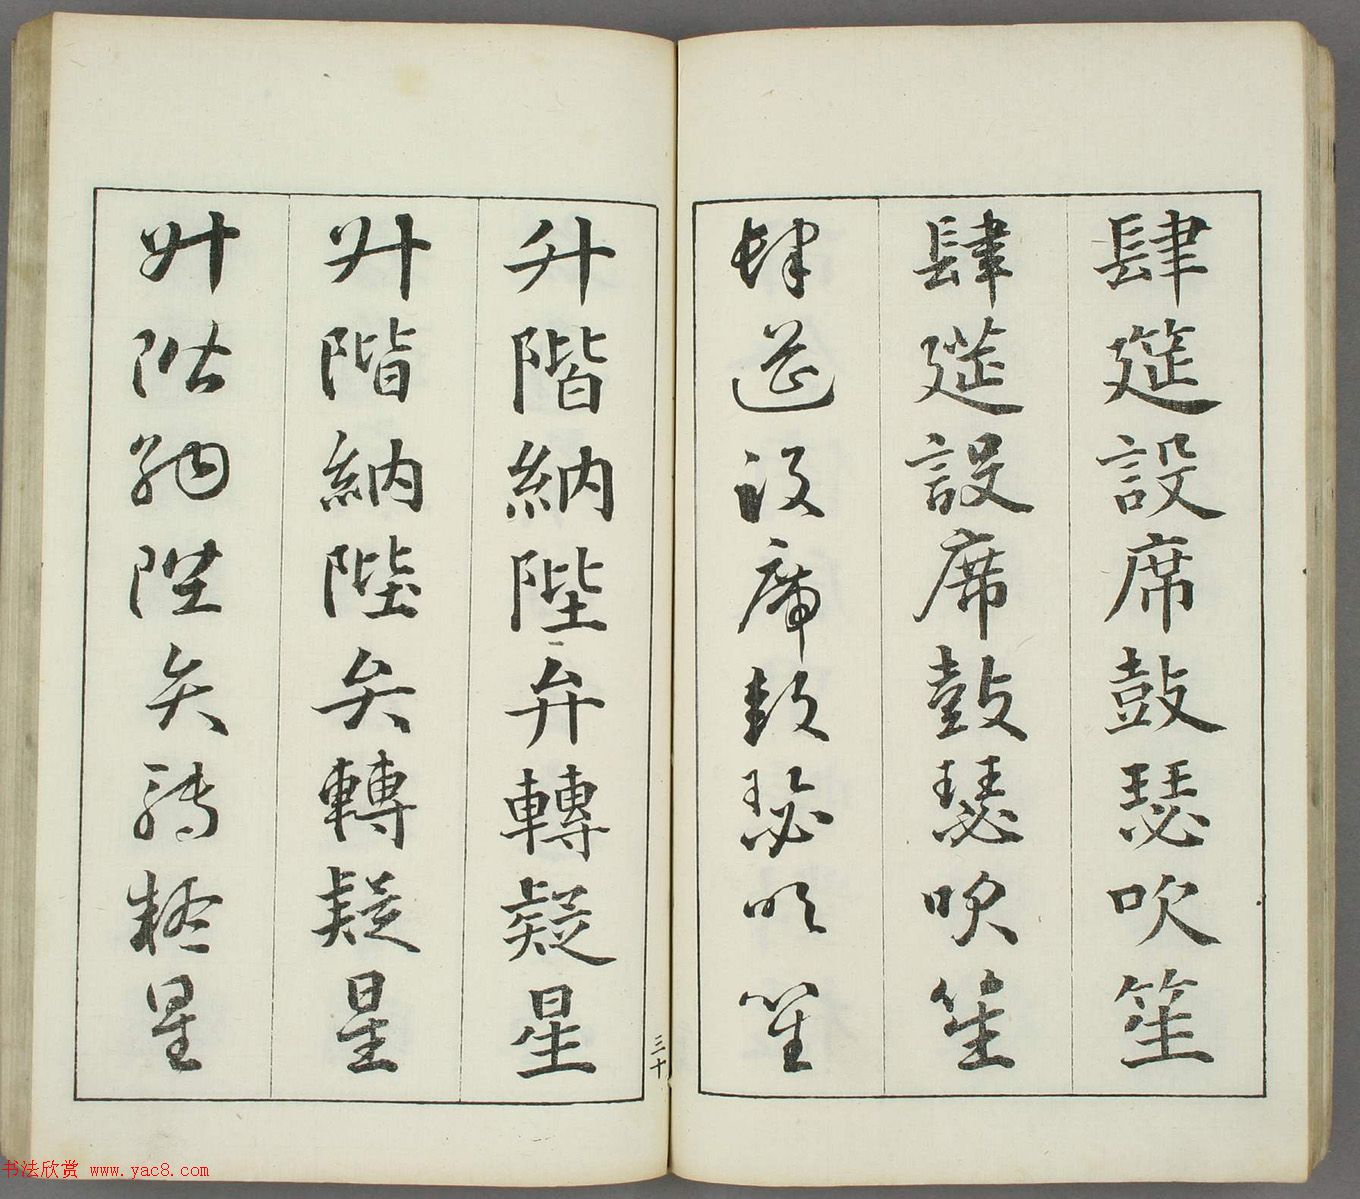 肆筵設席鼓瑟吹笙
肆筵設席鼓瑟吹笙
肆筵設席鼓瑟吹笙
升階納陛弁轉疑星
升階納陛弁轉疑星
升階納陛弁轉疑星
三十
书法欣赏 www.yac8.com